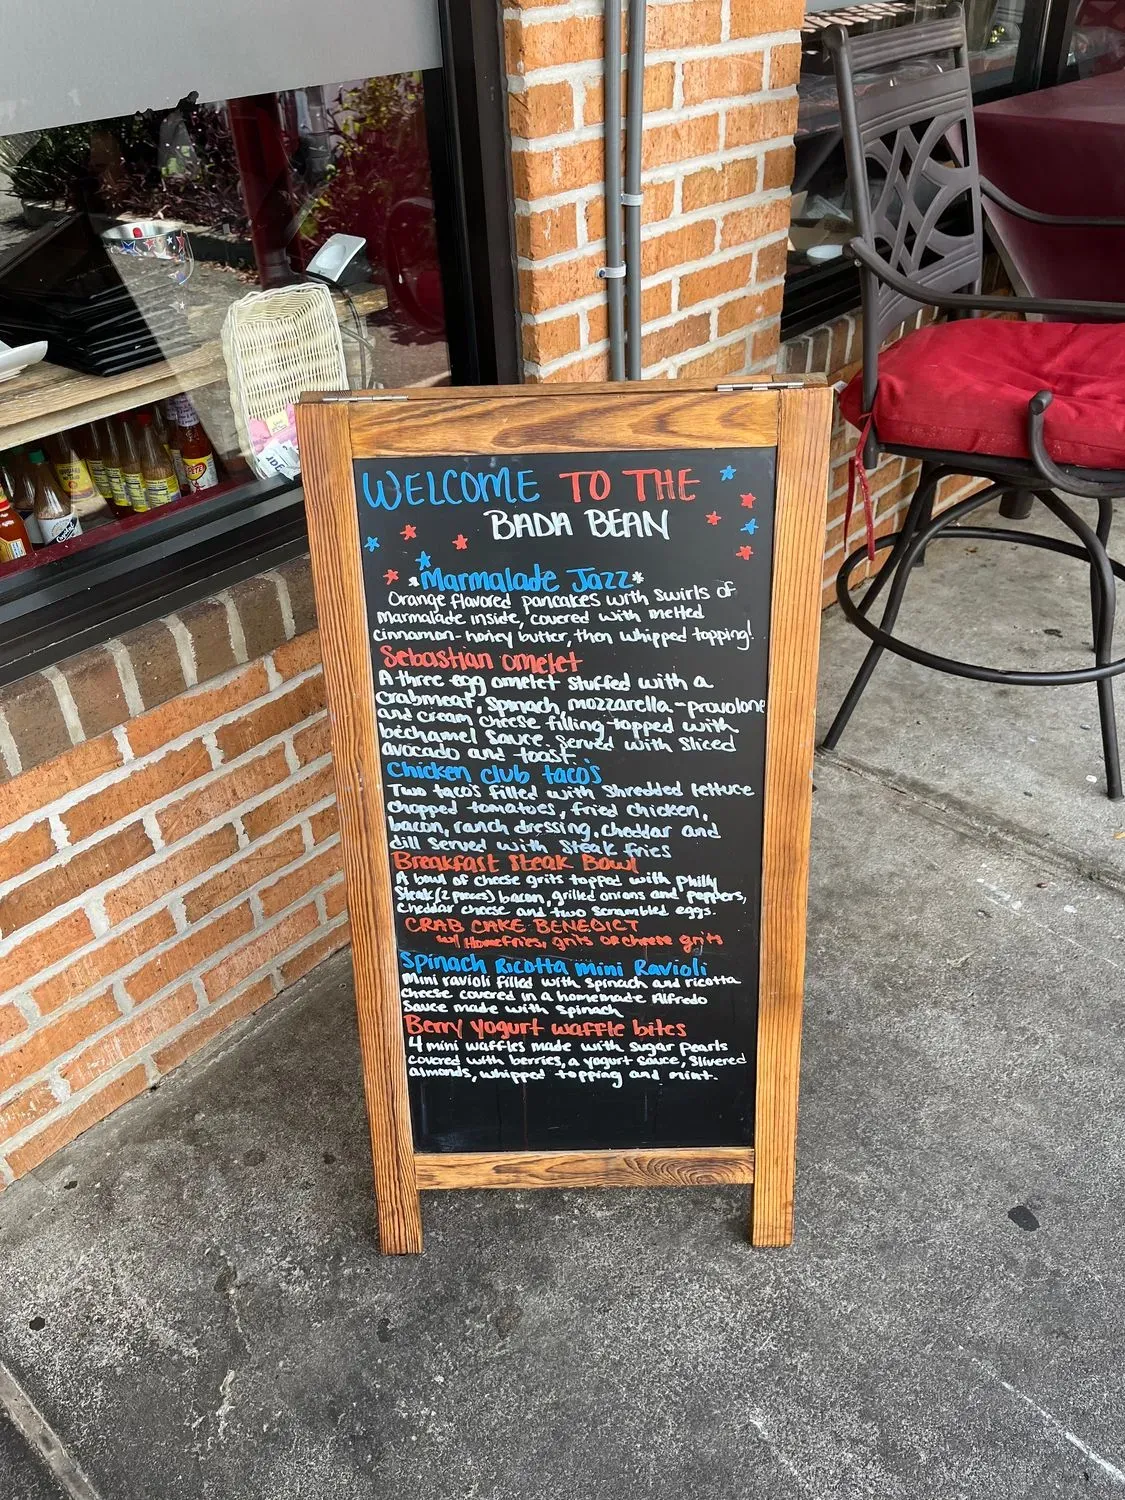 WELCOME TO THE
BADA BEAN
Marmalade Jazz
Orange flavored pancakes with swirls of
marmalade inside, covered with melted
cinnamon-honey butter, then whipped topping!
Sebastian omelet
A three egg omelet stuffed with a
crabmeat, spinach, mozzarella-provolone
and cream cheese filling topped with
béchamel sauce. Served with sliced
avocado and toast.
Chicken club taco's
Two taco's filled with shredded lettuce
chopped tomatoes, fried chicken,
bacon, ranch dressing, cheddar and
dill served with steak fries
Breakfast Steak Bowl
A bowl of cheese grits topped with Philly
Steak (2 pieces) bacon, grilled onions and peppers,
cheddar cheese and two scrambled eggs.
CRAB CAKE BENEDICT
w/ Homefries, grits or cheese grits
Spinach Ricotta Mini Ravioli
Mini ravioli filled with spinach and ricotta
cheese covered in a homemade Alfredo
Sauce made with spinach
Berry yogurt waffle bites
4 mini waffles made with sugar pearls
covered with berries, a yogurt sauce, slivered
almonds, whipped topping and mint.